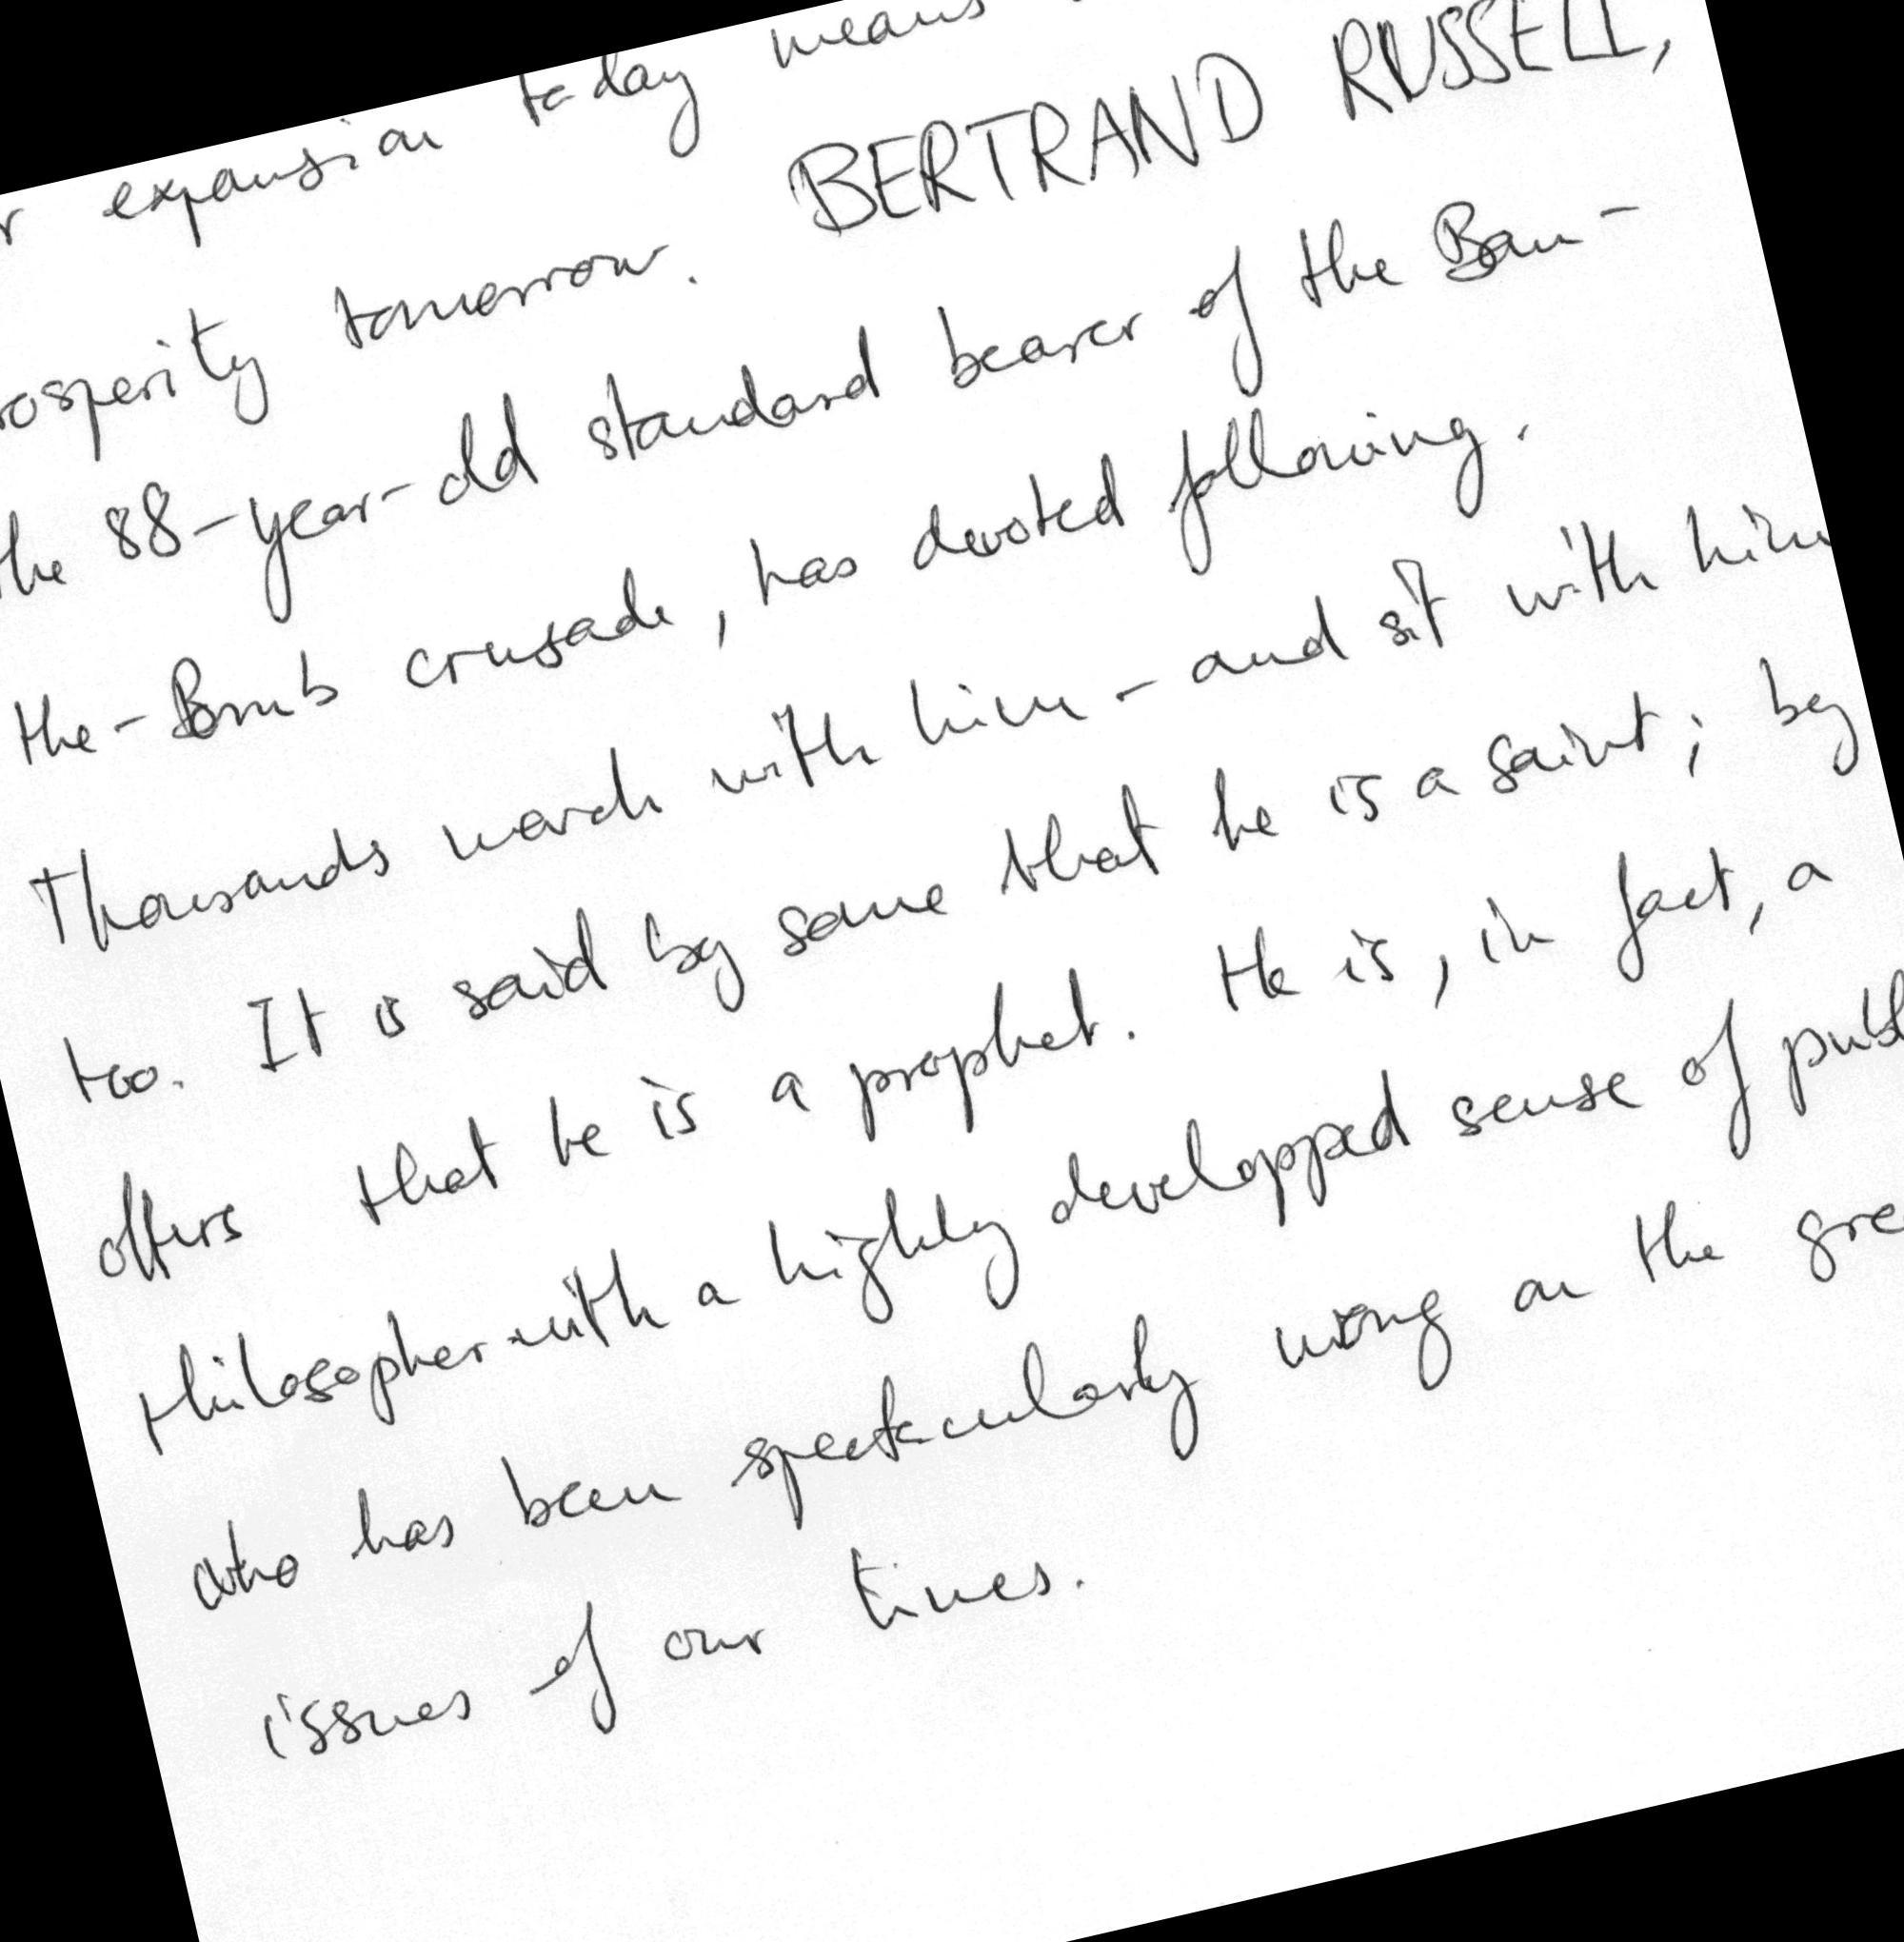 expansion today means
prosperity tomorrow. BERTRAND RUSSELL,
the 88-year-old standard bearer of the Ban-
the-Bomb crusade, has devoted following.
Thousands march with him - and sit with him
too. It is said by some that he is a saint; by
others that he is a prophet. He is, in fact, a
philosopher with a highly developped sense of publ
who has been spectacularly wrong on the gre
issues of our times.